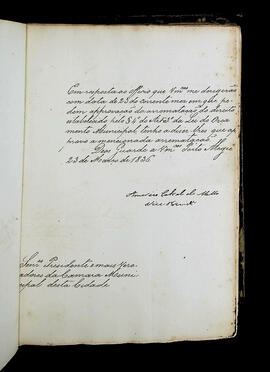 Em resposta ao officio que Vm.ces me dirigirão
com data de 23 do corrente mez em que pe-
dem approvação da arrematação do direito
estabelecido pelo § 4º do Art. da Lei do Orsa
mento Municipal, tenho a dizer lhes que ap
provo a mencionada arrematação.
Deos Guarde a Vm.ces Porto Alegre
23 de Março de 1836
Americo Cabral de Mello
Vice
Senr.es Presidente e mais Vere
adores da Camara Muni
cipal desta Cidade